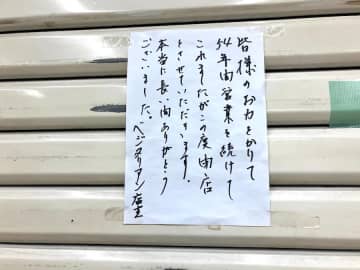 皆様のお力をかりて
54年間営業を続けて
これましたがこの度閉店
とさせていただきます。
本当に長い間ありがとう
ございました。ベジタリアン店主